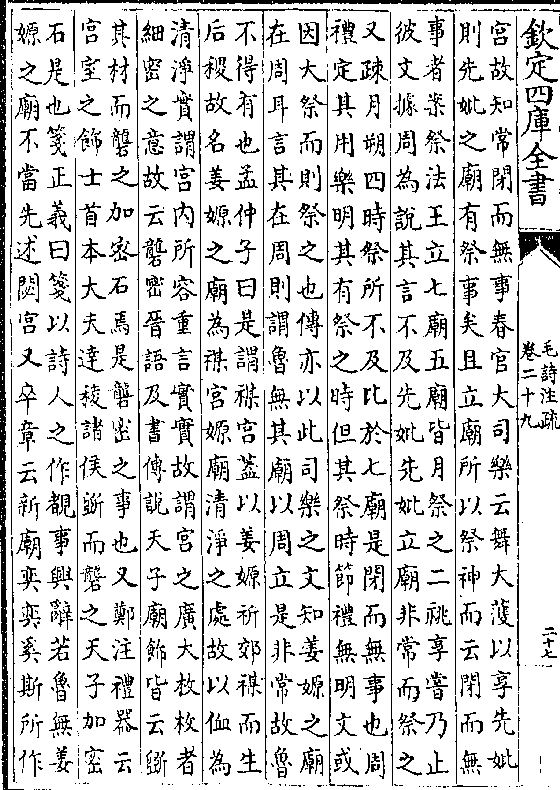 欽定四庫全書
毛詩注疏
卷二十九
二十七
宮故知常閉而無事春官大司樂云舞大濩以享先妣
則先妣之廟有祭事矣且立廟所以祭神而云閉而無
事者案祭法王立七廟五廟皆月祭之二祧享嘗乃止
彼文據周為說其言不及先妣先妣立廟非常而祭之
又疎月朔四時祭所不及比於七廟是閉而無事也周
禮定其用樂明其有祭之時但其祭時節禮無明文或
因大祭而則祭之也傳亦以此司樂之文知姜嫄之廟
在周耳言其在周則謂魯無其廟以周立是非常故魯
不得有也孟仲子曰是謂禖宮蓋以姜嫄祈郊禖而生
后稷故名姜嫄之廟為禖宮嫄廟清淨之處故以侐為
清淨實謂宮内所容重言實實故謂宮之廣大枚枚者
細密之意故云礱密晉語及書傳說天子廟飾皆云斵
其材而礱之加密石焉是礱密之事也又鄭注禮器云
宮室之飾士首本大夫達稜諸侯斵而礱之天子加密
石是也箋正義曰箋以詩人之作覩事興辭若魯無姜
嫄之廟不當先述閟宮又卒章云新廟奕奕奚斯所作